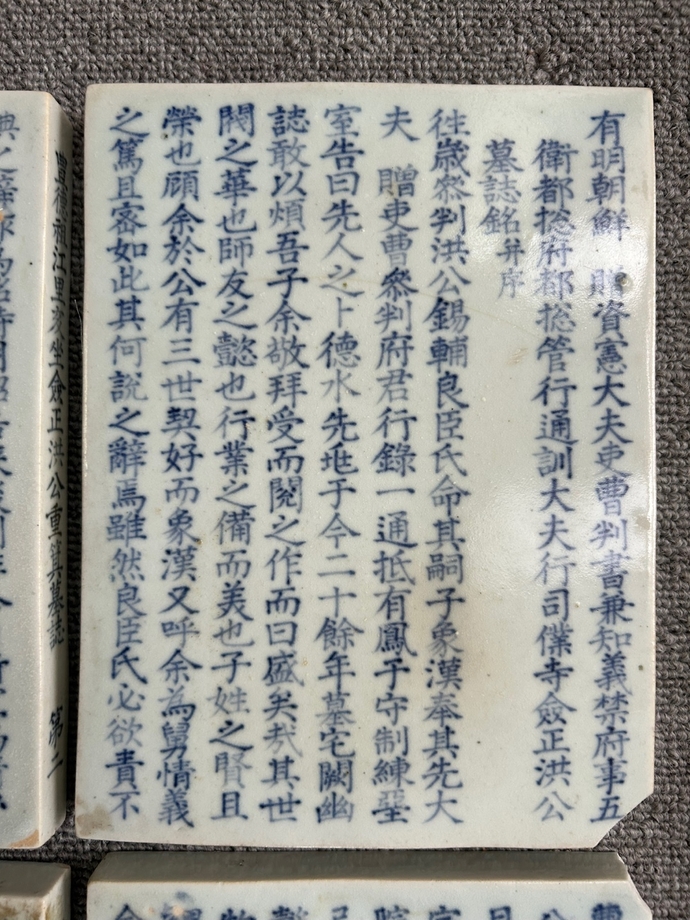 有明朝鮮 贈資憲大夫吏曹判書兼知義禁府事五
衛都摠府都摠管行通訓大夫行司僕寺僉正洪公
墓誌銘并序
往歲叅判洪公錫輔良臣氏命其嗣子象漢奉其先大
夫 贈吏曹叅判府君行錄一通抵有鳳于守制練堊
室告曰先人之卜德水先兆于今二十餘年墓宅闕幽
誌敢以煩吾子余敬拜受而閱之作而曰盛矣㢤其世
閥之華也師友之懿也行業之備而美也子姓之賢且
榮也顧余於公有三世契好而象漢又呼余為舅情義
之篤且密如此其何說之辭焉雖然良臣氏必欲責不
豐德祖江里亥坐僉正洪公重箕墓誌 第二